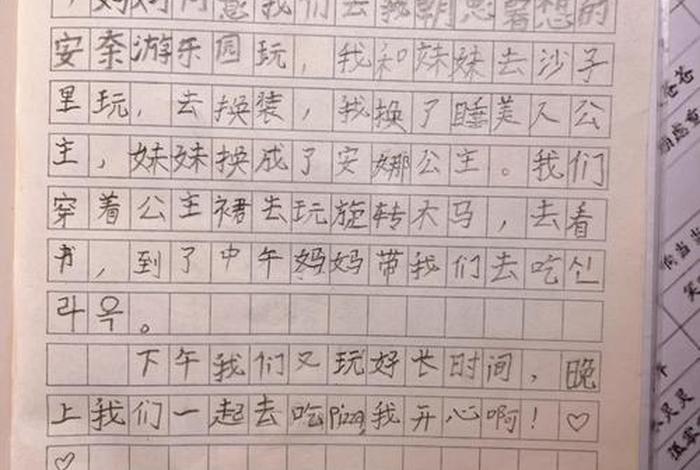 ,妈妈同意我们去我朝思暮想的
安奈游乐园玩,我和妹妹去沙子
里玩,去换装,我换了睡美人公
主,妹妹换成了安娜公主。我们
穿着公主裙去玩旋转木马,去看
书,到了中午妈妈带我们去吃신
라옥。
下午我们又玩好长时间,晚
上我们一起去吃pizza,我开心啊!♡
♡